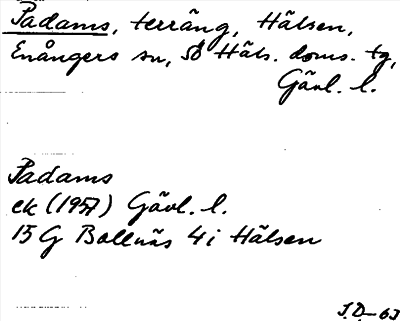 Padams, terräng, Hälsen,
Enångers sn, SÖ Häls. doms. tg,
Gävl. l.
Padams
ek (1957) Gävl. l.
15 G Bollnäs 4 i Hälsen
J.D.-63